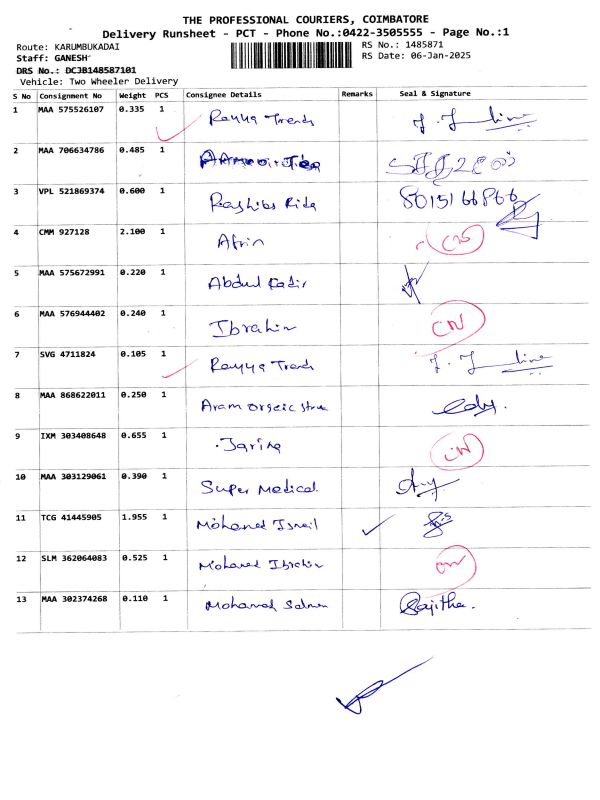 THE PROFESSIONAL COURIERS, COIMBATORE
Delivery Runsheet - PCT - Phone No.:0422-3505555 - Page No.:1
Route: KARUMBUKADAI
RS No.: 1485871
Staff: GANESH
RS Date: 06-Jan-2025
DRS No.: DCJB148587101
Vehicle: Two Wheeler Delivery
S No Consignment No Weight PCS Consignee Details Remarks Seal & Signature
1 MAA 575526107 0.335 1 Rayya Trends
2 MAA 706634786 0.485 1
3 VPL 521869374 0.600 1 8015166866
4 CMM 927128 2.100 1 Afrin CN
5 MAA 575672991 0.220 1 Abdul Kadir
6 MAA 576944402 0.240 1 Ibrahim CN
7 SVG 4711824 0.105 1 Rayya Trends
8 MAA 868622011 0.250 1 Aram
9 IXM 303408648 0.655 1 Jarina CN
10 MAA 303129061 0.390 1 Super Medical
11 TCG 41445905 1.955 1 Mohamed Ismail
12 SLM 362064083 0.525 1 Mohamed Ibrahim CN
13 MAA 302374268 0.110 1 Mohamed Salman Sajitha.